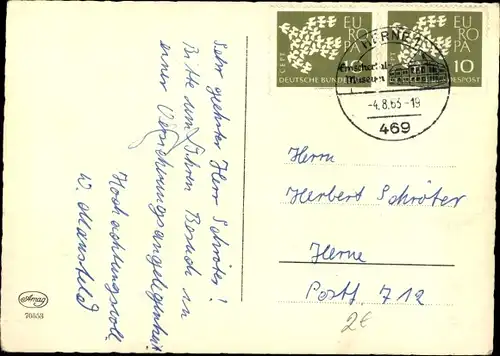 Sehr geehrter Herr Schröter!
Bitte um Ihren Besuch in
einer Versicherungsangelegenheit
Hochachtungsvoll
W. Mansfeld
Amag
70553
EUROPA
CEPT
10
DEUTSCHE BUNDESPOST
EUROPA
CEPT
10
BUNDESPOST
HERNE
Emschertal-
Museum
-4.8.63-19
469
Herrn
Herbert Schröter
Herne
Postf. 712
2€